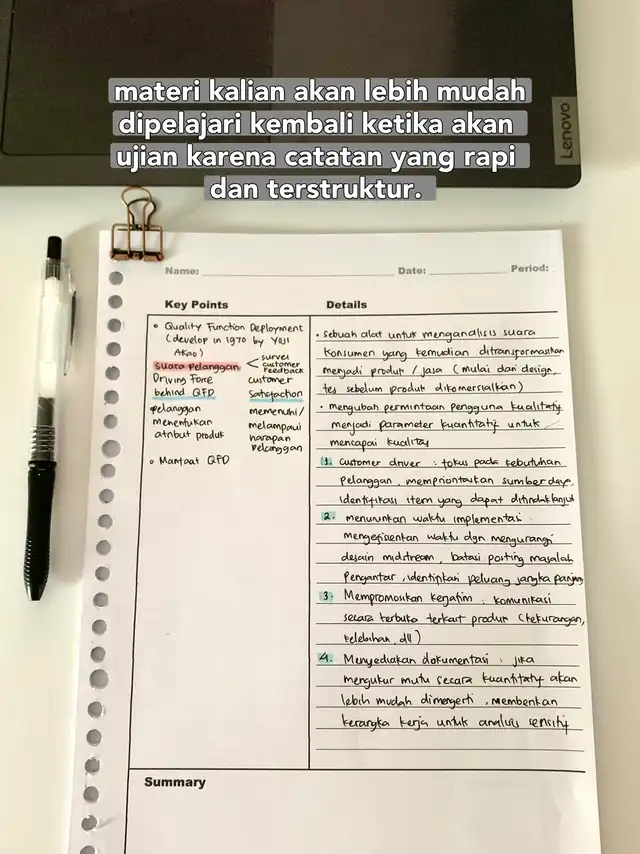 materi kalian akan lebih mudah
dipelajari kembali ketika akan
ujian karena catatan yang rapi
dan terstruktur.
Lenovo
Name:
Date:
Period:
Key Points
• Quality Function Deployment
(develop in 1970 by Yoji
Akao)
suara pelanggan < survei
customer
feedback
Driving Force
behind QFD
pelanggan
menentukan
atribut produk
customer
Satisfaction
memenuhi/
melampaui
harapan
pelanggan
• Manfaat QFD
Details
• sebuah alat untuk menganalisis suara
konsumen yang kemudian ditransformasikan
menjadi produk / jasa (mulai dari design,
tes sebelum produk dikomersialkan)
• mengubah permintaan pengguna kualitatif
menjadi parameter kuantitatif untuk
mencapai kualitas
1. Customer driver : fokus pada kebutuhan
pelanggan, memprioritaskan sumber daya,
identifikasi item yang dapat ditindaklanjuti
2. menurunkan waktu implementasi :
mengefisienkan waktu dgn mengurangi
desain midstream, batasi posting masalah
pengantar, identifikasi peluang jangka panjang
3. Mempromosikan kerjatim : komunikasi
secara terbuka terkait produk (kekurangan,
kelebihan, dll)
4. Menyediakan dokumentasi : jika
mengukur mutu secara kuantitatif akan
lebih mudah dimengerti, memberikan
kerangka kerja untuk analisis sensitif
Summary